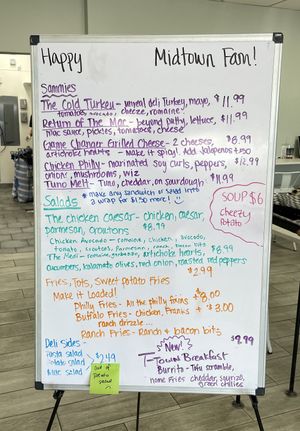 Happy Midtown Fam!
Sammies
The Cold Turkey - unreal deli Turkey, mayo, $11.99
tomatoes, avocado, cheeze, romaine
Return of The Mac - beyond patty, lettuce, $11.99
mac sauce, pickles, tomatoes, cheese
Game Changer Grilled Cheese - 2 cheeses, $8.99
artichoke hearts - make it spicy! Add Jalapeños
Chicken Philly - marinated soy curls, peppers, $12.99
onions, mushrooms, wiz
Tuno Melt - Tuno, cheddar, on sourdough $11.99
* make any sandwich a salad or
a wrap for $1.50 more!
Salads
SOUP $6
cheezy
Potato
The chicken caesar - chicken, caesar,
parmesan, croutons $8.79
Chicken Avocado - romaine, chicken, avocado,
tomato, croutons, parmesan, ranch,
The Medi - romaine, artichoke hearts, $8.99
cucumbers, kalamata olives, red onion, roasted red peppers
Fries, Tots, Sweet potato Fries $2.99
Make it Loaded!
Philly Fries - All the philly fixins + $8.00
Buffalo Fries - chicken, Franks + $3.00
ranch drizzle...
Ranch Fries - Ranch + bacon bits
Deli Sides -
Pasta salad
Potato salad $2.49
out of
potato
salad
New!
T-Town Breakfast $9.99
Burrito - Tofu scramble,
home fries cheddar,
green chilies